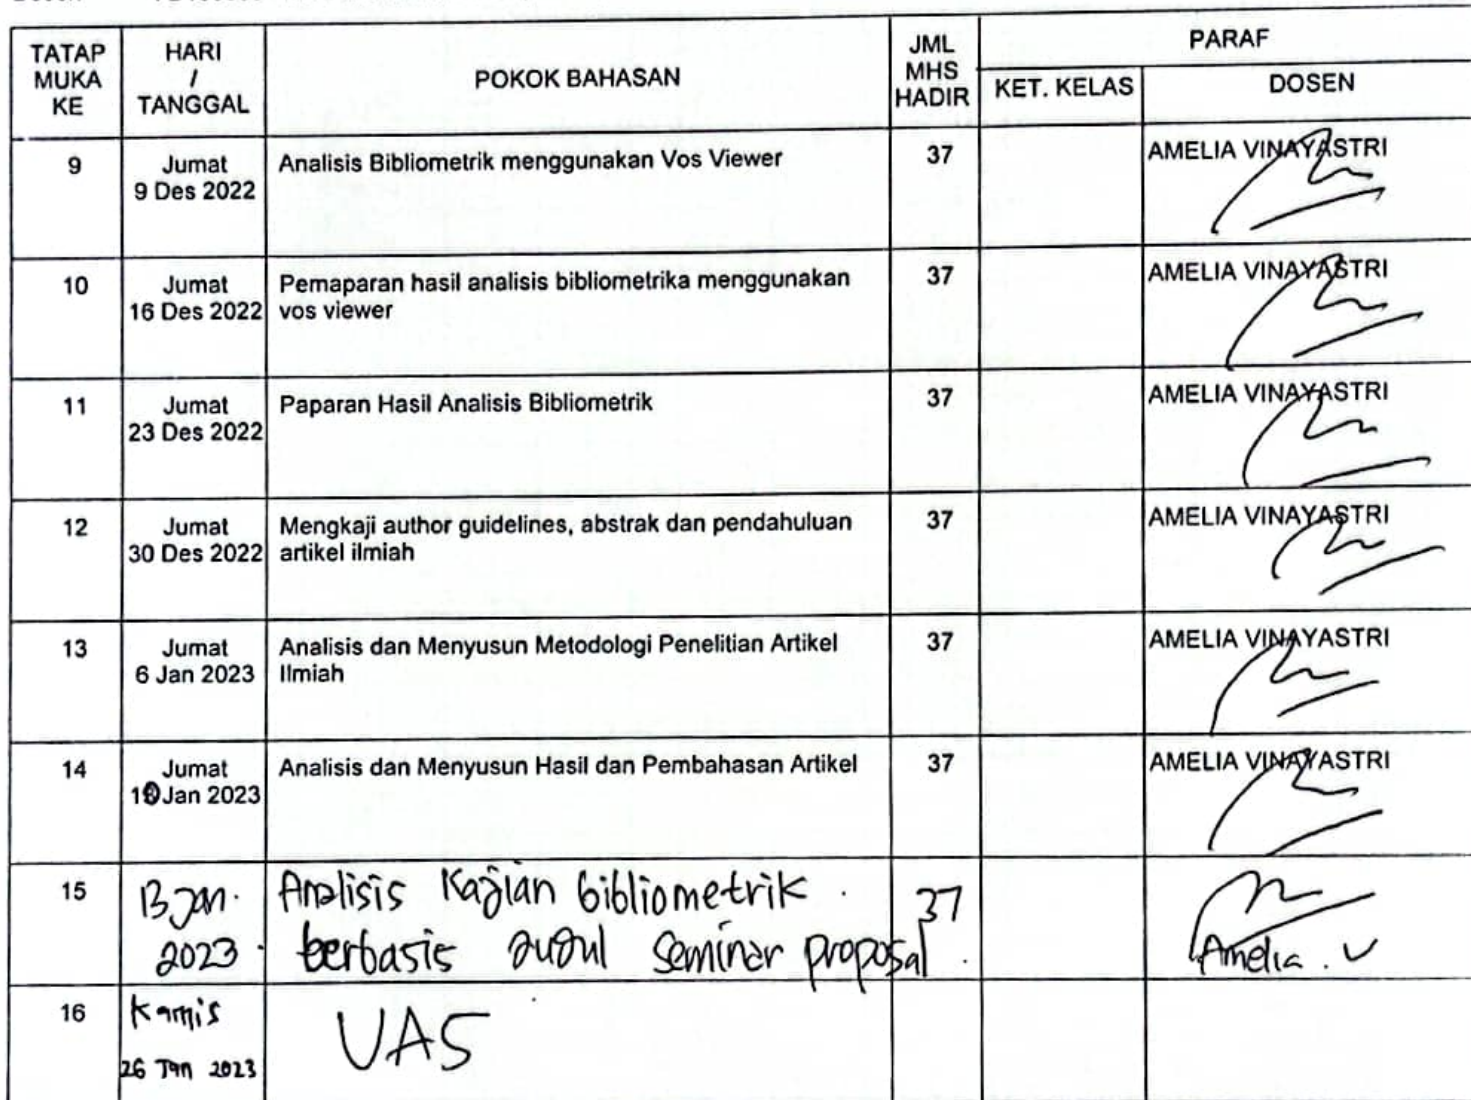 TATAP MUKA KE
HARI / TANGGAL
POKOK BAHASAN
JML MHS HADIR
PARAF
KET. KELAS
DOSEN
9
Jumat
9 Des 2022
Analisis Bibliometrik menggunakan Vos Viewer
37
AMELIA VINAYASTRI
10
Jumat
16 Des 2022
Pemaparan hasil analisis bibliometrika menggunakan
vos viewer
37
AMELIA VINAYASTRI
11
Jumat
23 Des 2022
Paparan Hasil Analisis Bibliometrik
37
AMELIA VINAYASTRI
12
Jumat
30 Des 2022
Mengkaji author guidelines, abstrak dan pendahuluan
artikel ilmiah
37
AMELIA VINAYASTRI
13
Jumat
6 Jan 2023
Analisis dan Menyusun Metodologi Penelitian Artikel
Ilmiah
37
AMELIA VINAYASTRI
14
Jumat
Jan 2023
Analisis dan Menyusun Hasil dan Pembahasan Artikel
37
AMELIA VINAYASTRI
15
13 Jan.
2023.
Analisis Kajian bibliometrik.
berbasis judul seminar proposal.
37
Amelia. V
16
Kamis
26 Jan 2023
UAS